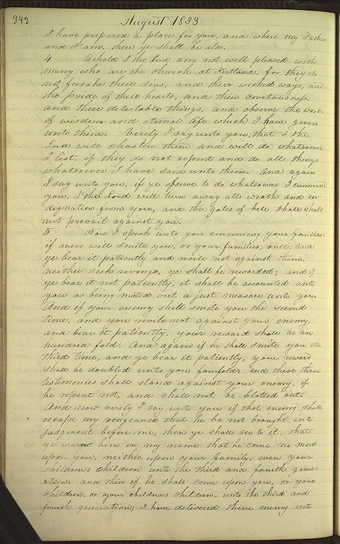 342 August 1833
I have prepared a place for you, and where my Father
and I am, there ye shall be also.
4 Behold I the Lord am not well pleased with
many who are the church at Kirtland, for they do
not forsake their sins, and their wicked ways, and
the pride of their hearts, and their covetousness,
and their detestable things, and observe the words
of wisdom and eternal life which I have given
unto them. Verily I say unto you, that I the
Lord will chasten them and will do whatsoever
I list, if they do not repent and do all things
whatsoever I have said unto them. And again
I say unto you, if ye observe to do whatsoever I command
you, I the Lord will turn away all wrath and in-
dignation from you, and the gates of hell shall
not prevail against you.
5 Now I speak unto you concerning your families
if men will smite you, or your families, once, and
ye bear it patiently and revile not against them,
neither seek revenge, ye shall be rewarded; and if
ye bear it not patiently, it shall be accounted unto
you as being meted out a just measure unto you.
And if your enemy shall smite you the second
time, and you revile not against your enemy,
and bear it patiently, your reward shall be an
hundred fold. And again if he shall smite you the
third time, and ye bear it patiently, your reward
shall be doubled unto you four fold; and these three
testimonies shall stand against your enemy, if
he repent not, and shall not be blotted out.
And now verily I say unto you if that enemy shall
escape my vengeance that he be not brought into
judgment before me, then ye shall see to it, that
ye warn him in my name that he come no more
upon you, neither upon your family, even your
childrens children unto the third and fourth gener-
ation. and then if he shall come upon you, or your
children, or your childrens children, unto the third and
fourth generation; I have delivered thine enemy into